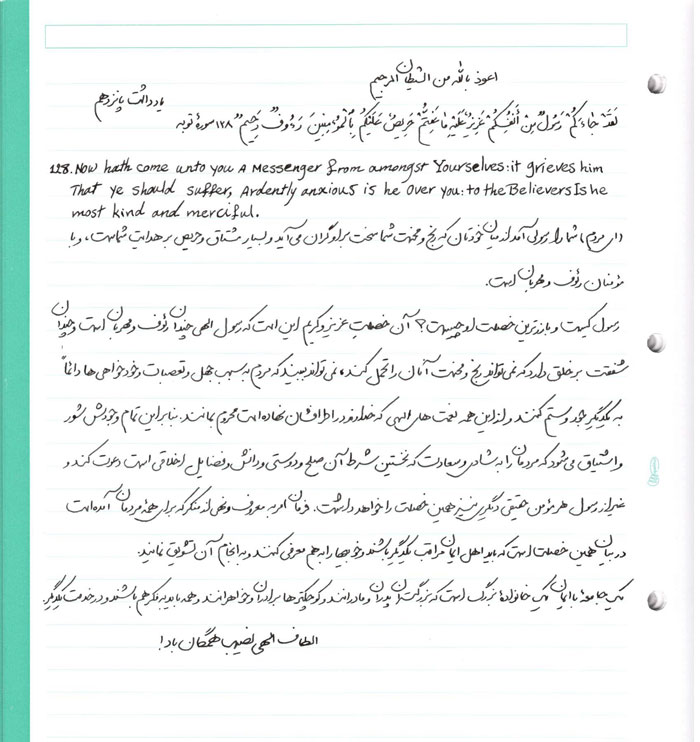 اعوذ بالله من الشیطان الرجیم
یادداشت پانزدهم
لَقَدْ جَاءَكُمْ رَسُولٌ مِنْ أَنْفُسِكُمْ عَزِيزٌ عَلَيْهِ مَا عَنِتُّمْ حَرِيصٌ عَلَيْكُمْ بِالْمُؤْمِنِينَ رَءُوفٌ رَحِيمٌ ۱۲۸ سورهٔ توبه
128. Now hath come unto you A Messenger from amongst Yourselves: it grieves him
That ye should suffer, Ardently anxious is he Over you: to the Believers Is he
most kind and merciful.
(ای مردم) شما را رسولی آمد از میان خودتان که رنج و محنت شما سخت بر او گران می‌آید و بسیار مشتاق و حریص بر هدایت شماست، و با
مؤمنان رئوف و مهربان است.
رسول کیست و بارزترین خصلت او چیست؟ آن خصلت عزیز و کریم این است که رسول الهی چندان رئوف و مهربان است و چندان
شفقت بر خلق دارد که نمی‌تواند رنج و محنت آنان را تحمل کند، نمی‌تواند ببیند که مردم به سبب جهل و تعصبات و خودخواهی‌ها دائماً
به یکدیگر جور و ستم کنند و از این همه نعمت‌های الهی که خداوند در اطرافشان نهاده است محروم بمانند. بنابراین تمام وجودش شور
و اشتیاق می‌شود که مردمان را به شادی و سعادت که نخستین شرط آن صلح و دوستی و دانش و فضایل اخلاقی است دعوت کند و
غیر از رسول هر مؤمن حقیقی دیگری نیز همین خصلت را خواهد داشت. فرمان امر به معروف و نهی از منکر که برای همهٔ مردمان آمده است
در بیان همین خصلت است که باید اهل ایمان مراقب یکدیگر باشند و خوبیها را به هم معرفی کنند و به انجام آن تشویق نمایند.
یک جامعهٔ با ایمان یک خانوادهٔ بزرگ است که بزرگتران پدران و مادرانند و کوچکترها برادران و خواهرانند و همه باید به فکر هم باشند و در خدمت یکدیگر.
الطاف الهی نصیب همگان باد!